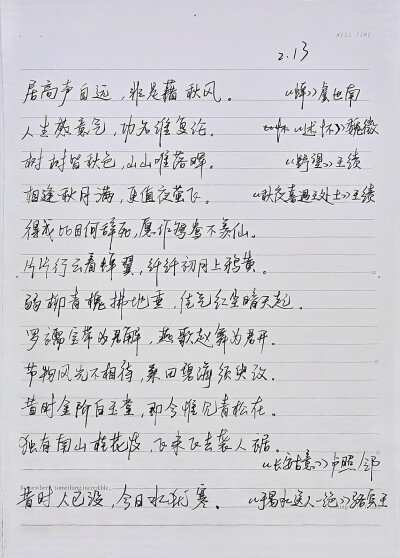 MISS TIME
2.13
居高声自远，非是藉秋风。 《蝉》虞世南
人生感意气，功名谁复论。 《述怀》魏徵
树树皆秋色，山山唯落晖。 《野望》王绩
相逢秋月满，更值夜萤飞。 《秋夜喜遇王处士》王绩
得成比目何辞死，愿作鸳鸯不羡仙。
片片行云着蝉翼，纤纤初月上鸦黄。
弱柳青槐拂地垂，佳气红尘暗天起。
罗襦宝带为君解，燕歌赵舞为君开。
节物风光不相待，桑田碧海须臾改。
昔时金阶白玉堂，即今惟见青松在。
独有南山桂花发，飞来飞去袭人裾。
《长安古意》卢照邻
Somewhere, something incredible.
昔时人已没，今日水犹寒。 《易水送人一绝》骆宾王